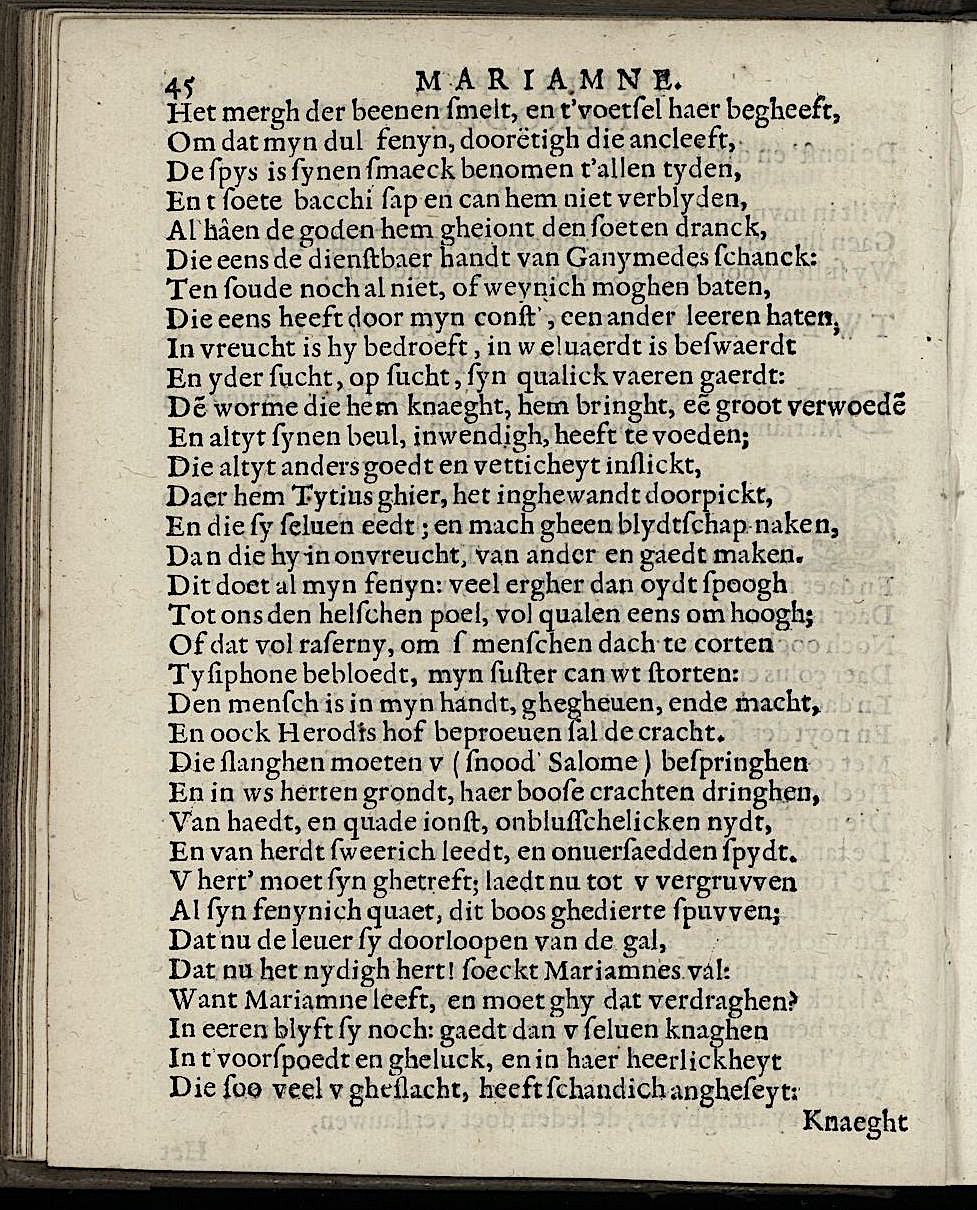 45 MARIAMNE.
Het mergh der beenen ſmelt, en t'voetſel haer begheeft,
Om dat myn dul fenyn, doorëtigh die ancleeft,
De ſpys is ſynen ſmaeck benomen t'allen tyden,
En t ſoete bacchi ſap en can hem niet verblyden,
Al hâen de goden hem gheiont den ſoeten dranck,
Die eens de dienſtbaer handt van Ganymedes ſchanck:
Ten ſoude noch al niet, of weynich moghen baten,
Die eens heeft door myn conſt', een ander leeren haten,
In vreucht is hy bedroeft, in weluaerdt is beſwaerdt
En yder ſucht, op ſucht, ſyn qualick vaeren gaerdt:
Dẽ worme die hem knaeght, hem bringht, eẽ groot verwoedẽ
En altyt ſynen beul, inwendigh, heeft te voeden;
Die altyt anders goedt en vetticheyt inſlickt,
Daer hem Tytius ghier, het inghewandt doorpickt,
En die ſy ſeluen eedt; en mach gheen blydtſchap naken,
Dan die hy in onvreucht, van ander en gaedt maken.
Dit doet al myn fenyn: veel ergher dan oydt ſpoogh
Tot ons den helſchen poel, vol qualen eens om hoogh;
Of dat vol raſerny, om ſ menſchen dach te corten
Tyſiphone bebloedt, myn ſuſter can wt ſtorten:
Den menſch is in myn handt, ghegheuen, ende macht,
En oock Herodis hof beproeuen ſal de cracht.
Die ſlanghen moeten v (ſnood' Salome) beſpringhen
En in ws herten grondt, haer booſe crachten dringhen,
Van haedt, en quade ionſt, onbluſſchelicken nydt,
En van herdt ſweerich leedt, en onuerſaedden ſpydt.
V hert' moet ſyn ghetreft; laedt nu tot v vergruvven
Al ſyn fenynich quaet, dit boos ghedierte ſpuvven;
Dat nu de leuer ſy doorloopen van de gal,
Dat nu het nydigh hert! ſoeckt Mariamnes val:
Want Mariamne leeft, en moet ghy dat verdraghen?
In eeren blyft ſy noch: gaedt dan v ſeluen knaghen
In t'voorſpoedt en gheluck, en in haer heerlickheyt
Die ſoo veel v gheſlacht, heeft ſchandich angheſeyt:
Knaeght